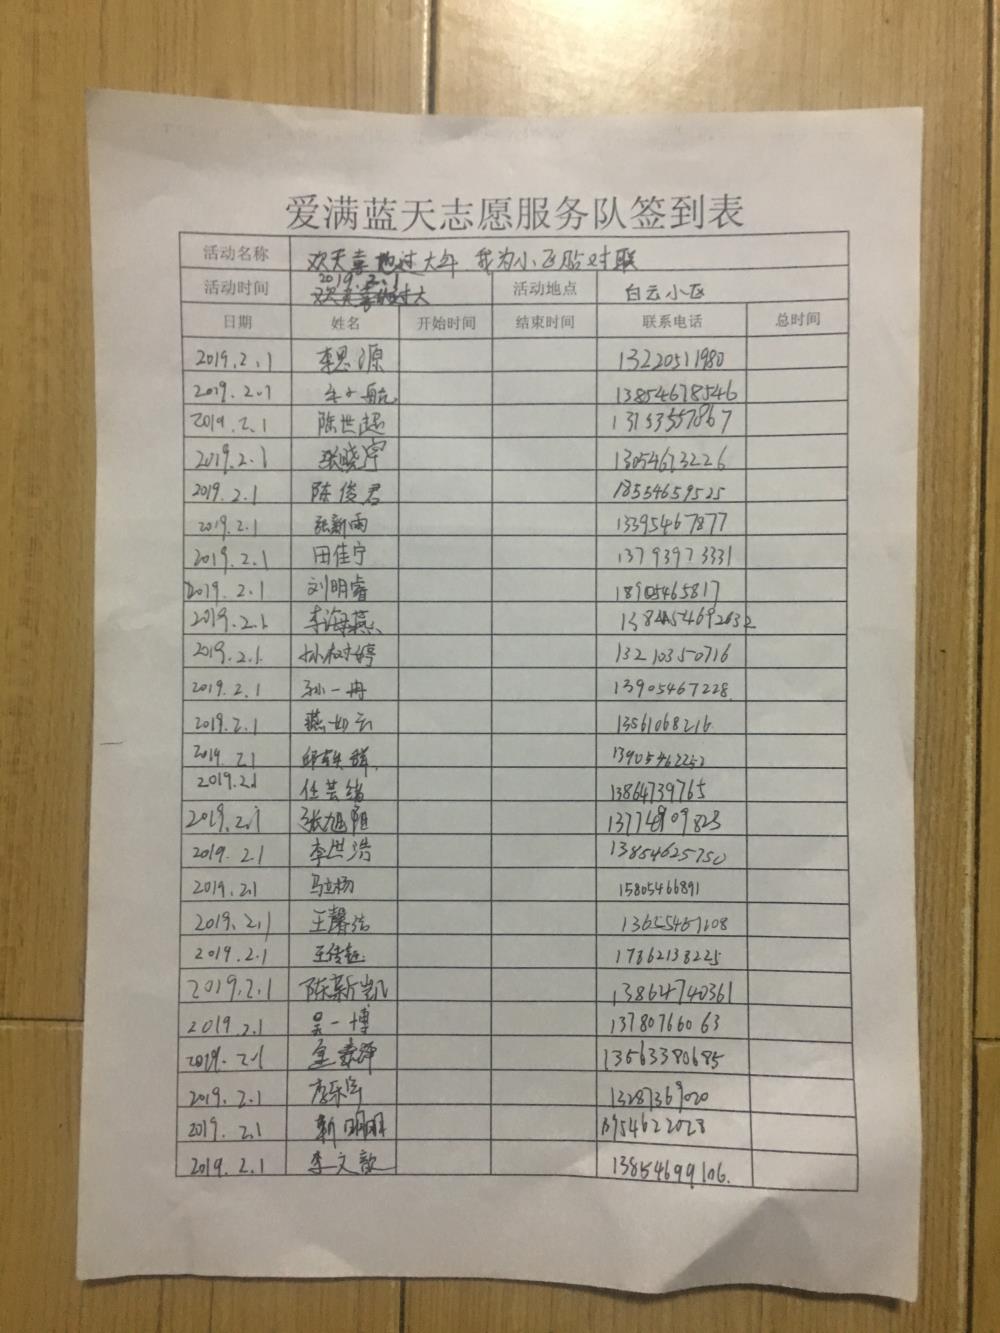 爱满蓝天志愿服务队签到表
活动名称 欢天喜地过大年 我为小区贴对联
活动时间 2019.2.1 活动地点 白云小区
日期 姓名 开始时间 结束时间 联系电话 总时间
2019.2.1 李思源 13220511980
2019.2.1 13854678546
2019.2.1 陈世超 13153557867
2019.2.1 张晓宇 13054673226
2019.2.1 陈俊君 18554659525
2019.2.1 张新雨 13395467877
2019.2.1 田佳宁 13793973331
2019.2.1 刘明睿 18905465817
2019.2.1 李海燕
2019.2.1 孙树婷 13210350716
2019.2.1 孙一冉 13905467228
2019.2.1 燕如云 13561068216
2019.2.1 13905462252
2019.2.1 任芸绪 13864739765
2019.2.1 张旭阳
2019.2.1 李洪浩 13854625750
2019.2.1 马立杨 15805466891
2019.2.1 王馨浩
2019.2.1 王传钰 17862138225
2019.2.1 陈新凯 13864740361
2019.2.1 吴一博 13780766063
2019.2.1 13563380685
2019.2.1 李乐宇 13287369020
2019.2.1 靳明明
2019.2.1 李文歆 13854699106